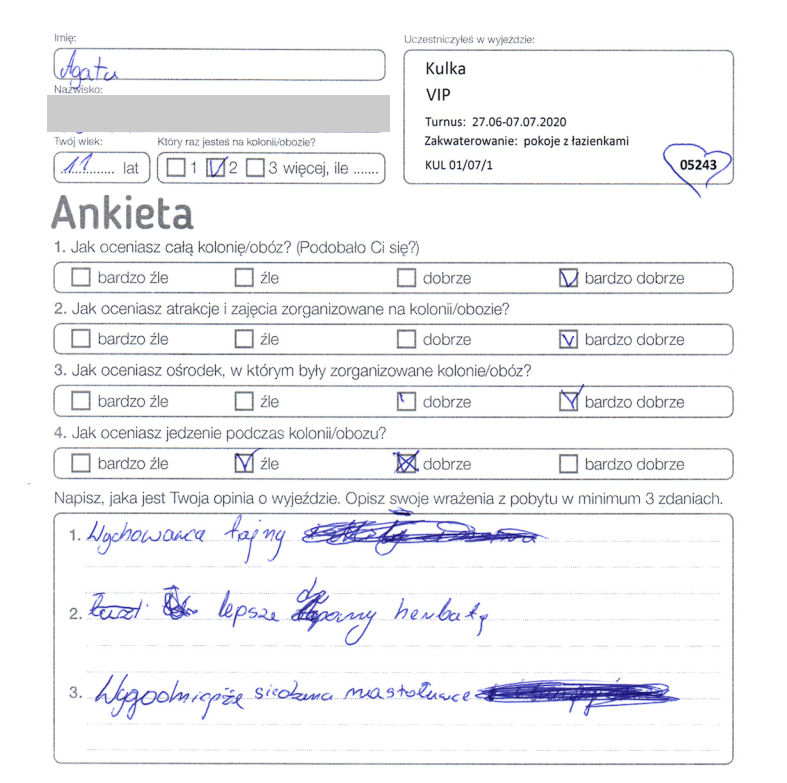 Imię:
Uczestniczyłeś w wyjeździe:
Agata
Nazwisko:
Kulka
VIP
Turnus: 27.06-07.07.2020
Zakwaterowanie: pokoje z łazienkami
KUL 01/07/1
05243
Twój wiek:
Który raz jesteś na kolonii/obozie?
11 lat
1 2 3 więcej, ile .......
Ankieta
1. Jak oceniasz całą kolonię/obóz? (Podobało Ci się?)
bardzo źle źle dobrze bardzo dobrze
2. Jak oceniasz atrakcje i zajęcia zorganizowane na kolonii/obozie?
bardzo źle źle dobrze bardzo dobrze
3. Jak oceniasz ośrodek, w którym były zorganizowane kolonie/obóz?
bardzo źle źle dobrze bardzo dobrze
4. Jak oceniasz jedzenie podczas kolonii/obozu?
bardzo źle źle dobrze bardzo dobrze
Napisz, jaka jest Twoja opinia o wyjeździe. Opisz swoje wrażenia z pobytu w minimum 3 zdaniach.
1. Wychowawca fajny
2. lepsze herbatę
3.